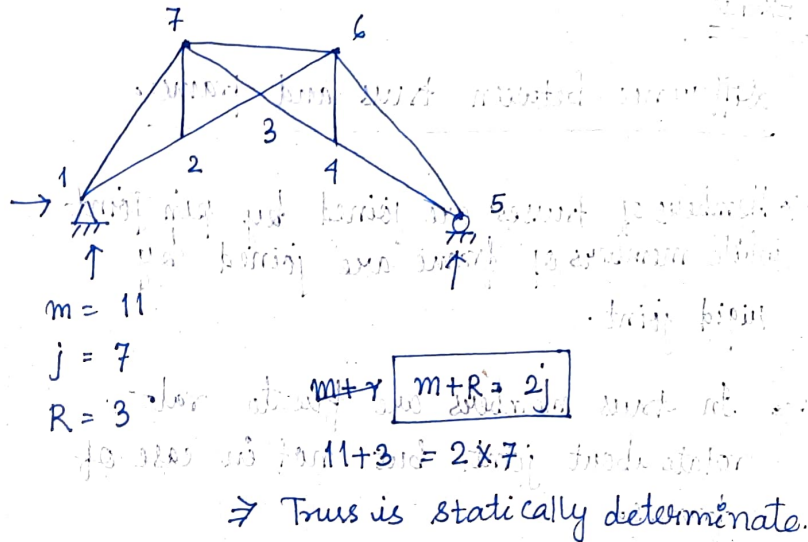 7
6
3
2
4
1
5
m = 11
j = 7
R = 3
m+r m+R = 2j
11+3 = 2×7
⇒ Truss is statically determinate.